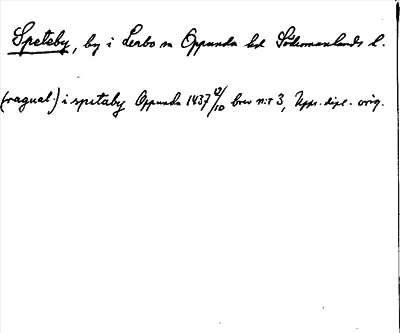 Speteby, by i Lerbo sn Oppunda hd Södermanlands l.
(ragual.) i spitaby Oppunda 1437 12/10 brev n:r 3, Upps. dipl. orig.